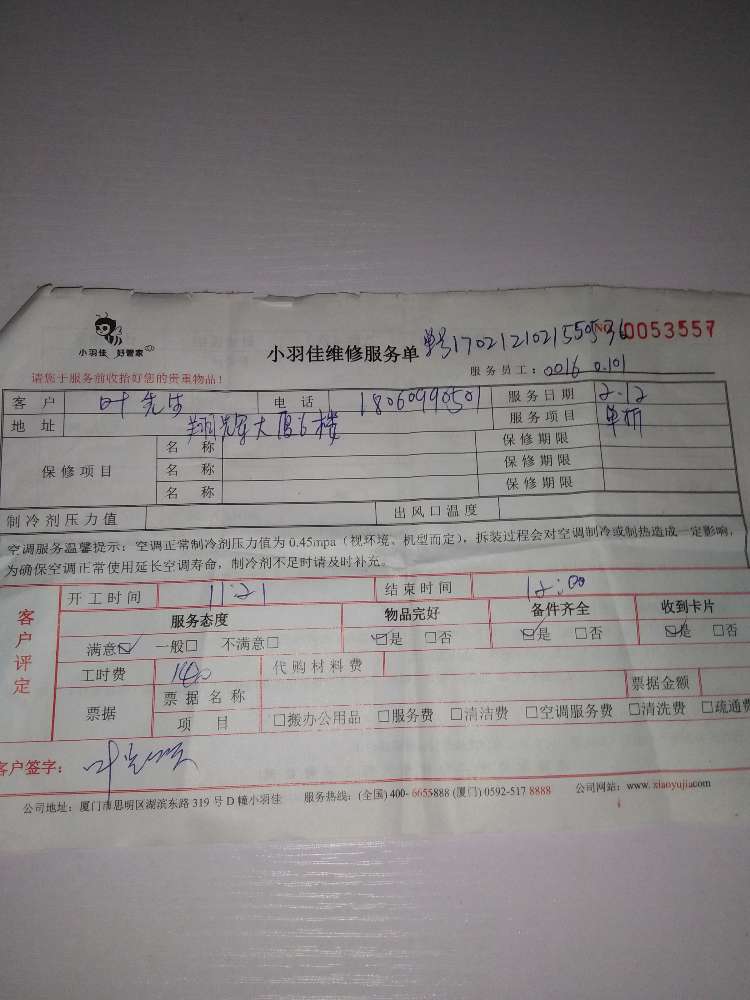 小羽佳 好管家
小羽佳维修服务单 单号170212102155953
NO 0053557
请您于服务前收拾好您的贵重物品！ 服务员工：0016 0101
客户 叶先生 电话 18060990501 服务日期 2.12
地址 翔 大厦6楼 服务项目 单
保修项目 名称 保修期限
名称 保修期限
名称 保修期限
制冷剂压力值 出风口温度
空调服务温馨提示：空调正常制冷剂压力值为0.45mpa（视环境、机型而定），拆装过程会对空调制冷或制热造成一定影响，
为确保空调正常使用延长空调寿命，制冷剂不足时请及时补充。
客户评定
开工时间 11:21 结束时间 12:00
服务态度 物品完好 备件齐全 收到卡片
满意☑ 一般□ 不满意□ ☑是 □否 ☑是 □否 ☑是 □否
工时费 140 代购材料费
票据 票据名称 票据金额
项目 □搬办公用品 □服务费 □清洁费 □空调服务费 □清洗费 □疏通费
客户签字：
公司地址：厦门市思明区湖滨东路319号D幢小羽佳 服务热线：(全国) 400-6655888 (厦门) 0592-517 8888 公司网站：www.xiaoyujia.com